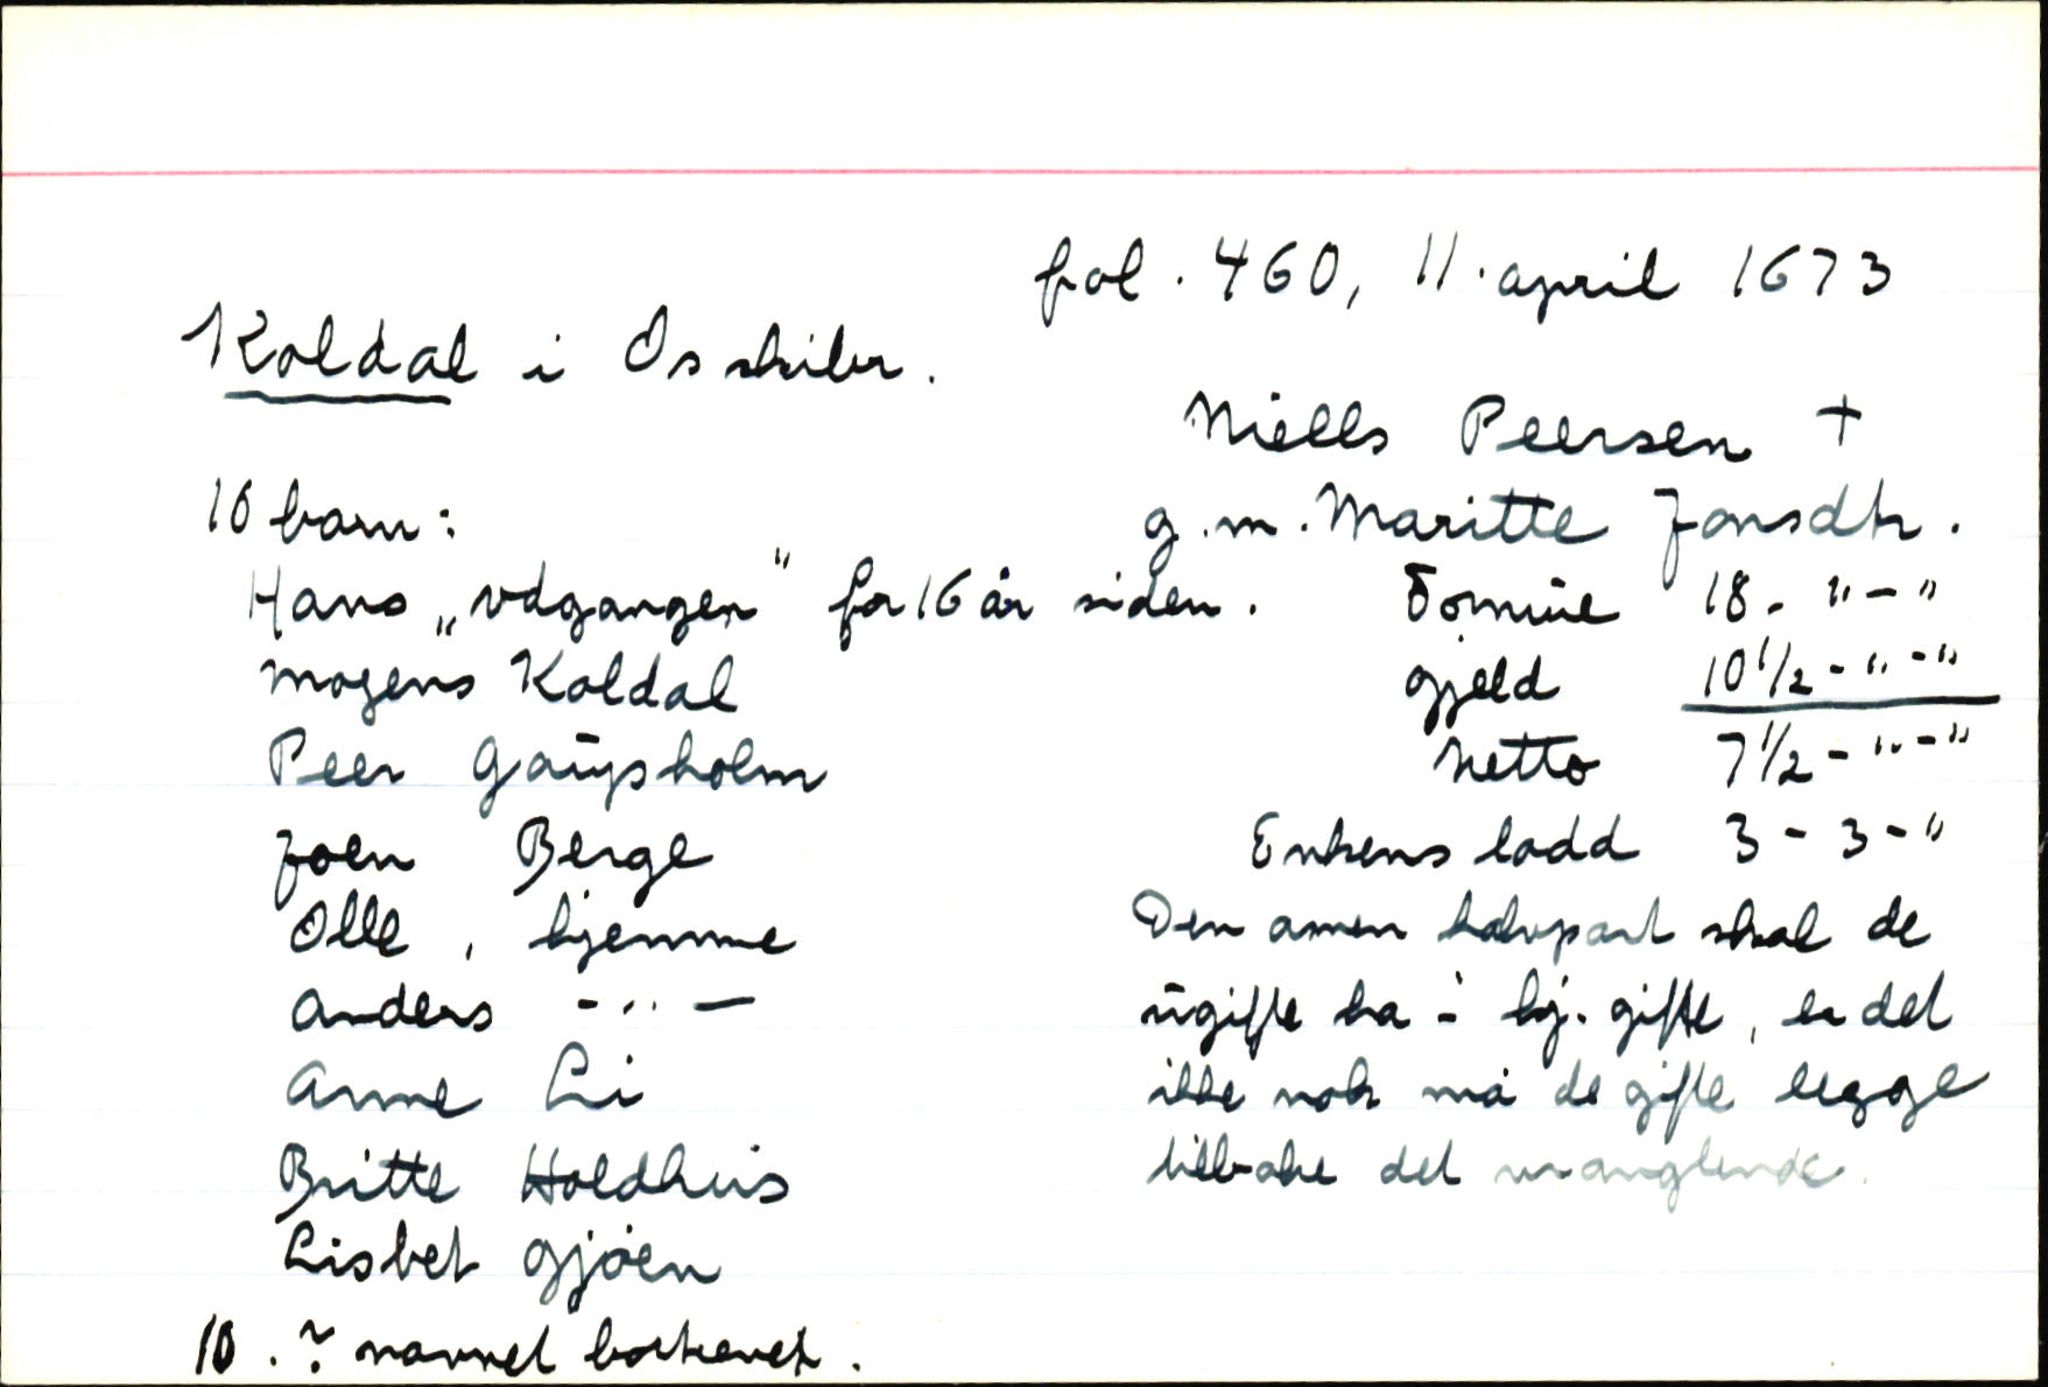 fol. 460, 11. april 1673
Koldal i Os skibr.
Niells Peersen +
g.m. Maritte Jonsdtr.
10 barn:
Hans „vdgangen" for 16 år siden.
Mogens Koldal
Peer Gaŭpsholm
Joen Berge
Olle, hjemme
Anders - " -
Anne Li
Britte Holdhus
Lisbet Gjøen
10. ? navnet bortrevet.
Formŭe 18 - " - "
gjeld 10 1/2 - " - "
Netto 7 1/2 - " - "
Enkens lodd 3 - 3 - "
Den annen halvpart skal de
ŭgifte ha i hj. gifte, er det
ikke nok må de gifte legge
tilbake det manglende.